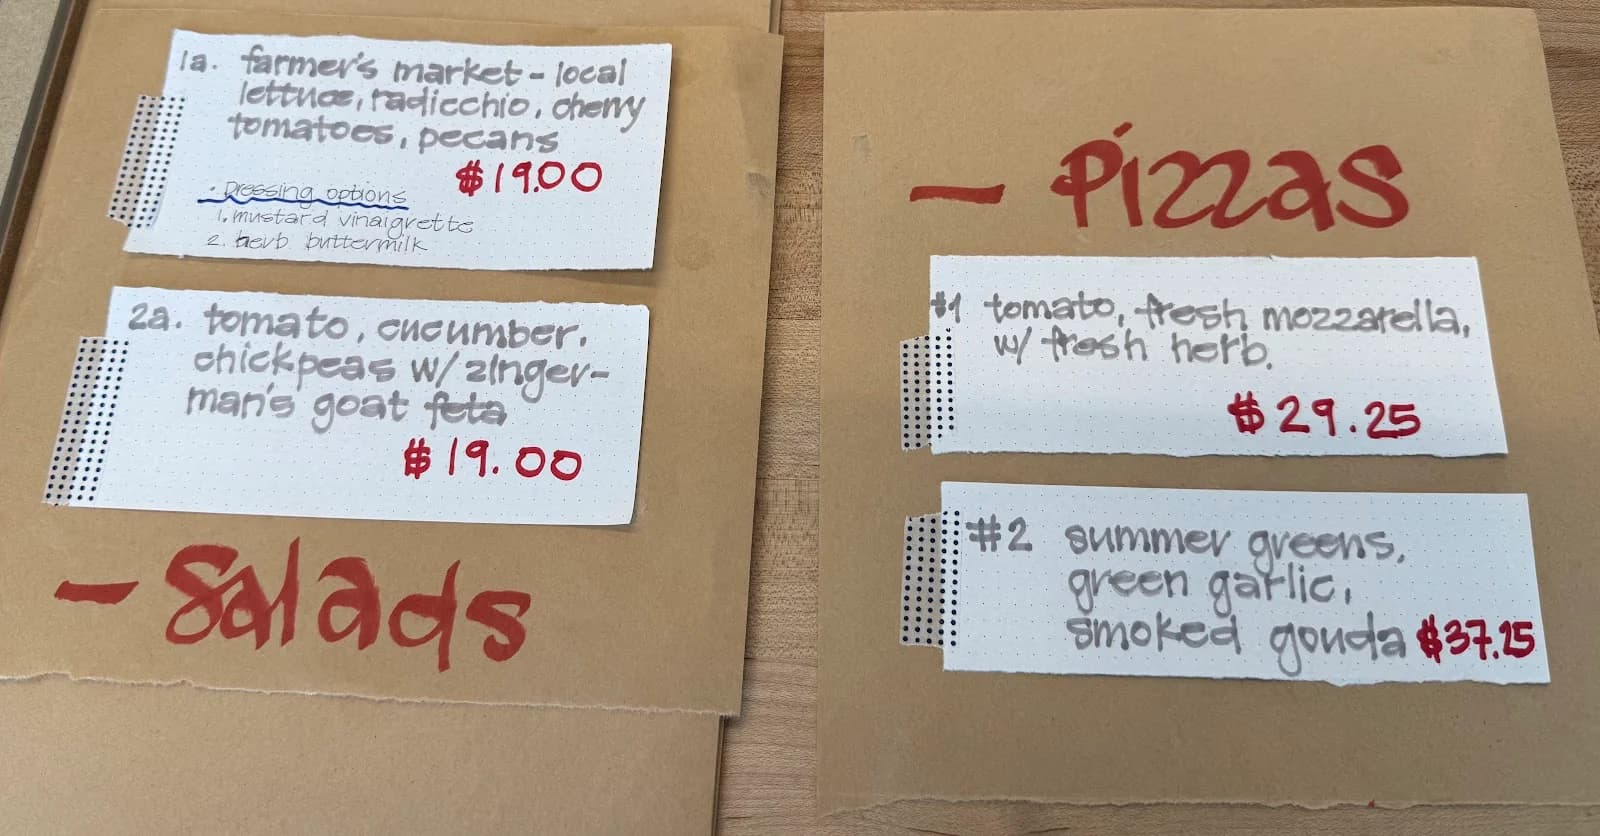 1a. farmer's market - local
lettuce, radicchio, cherry
tomatoes, pecans
$19.00
· Dressing options
1. mustard vinaigrette
2. herb buttermilk
2a. tomato, cucumber,
chickpeas w/ zinger-
man's goat feta
$19.00
- Salads
- Pizzas
#1 tomato, fresh mozzarella,
w/ fresh herb.
$29.25
#2 summer greens,
green garlic,
smoked gouda $37.25